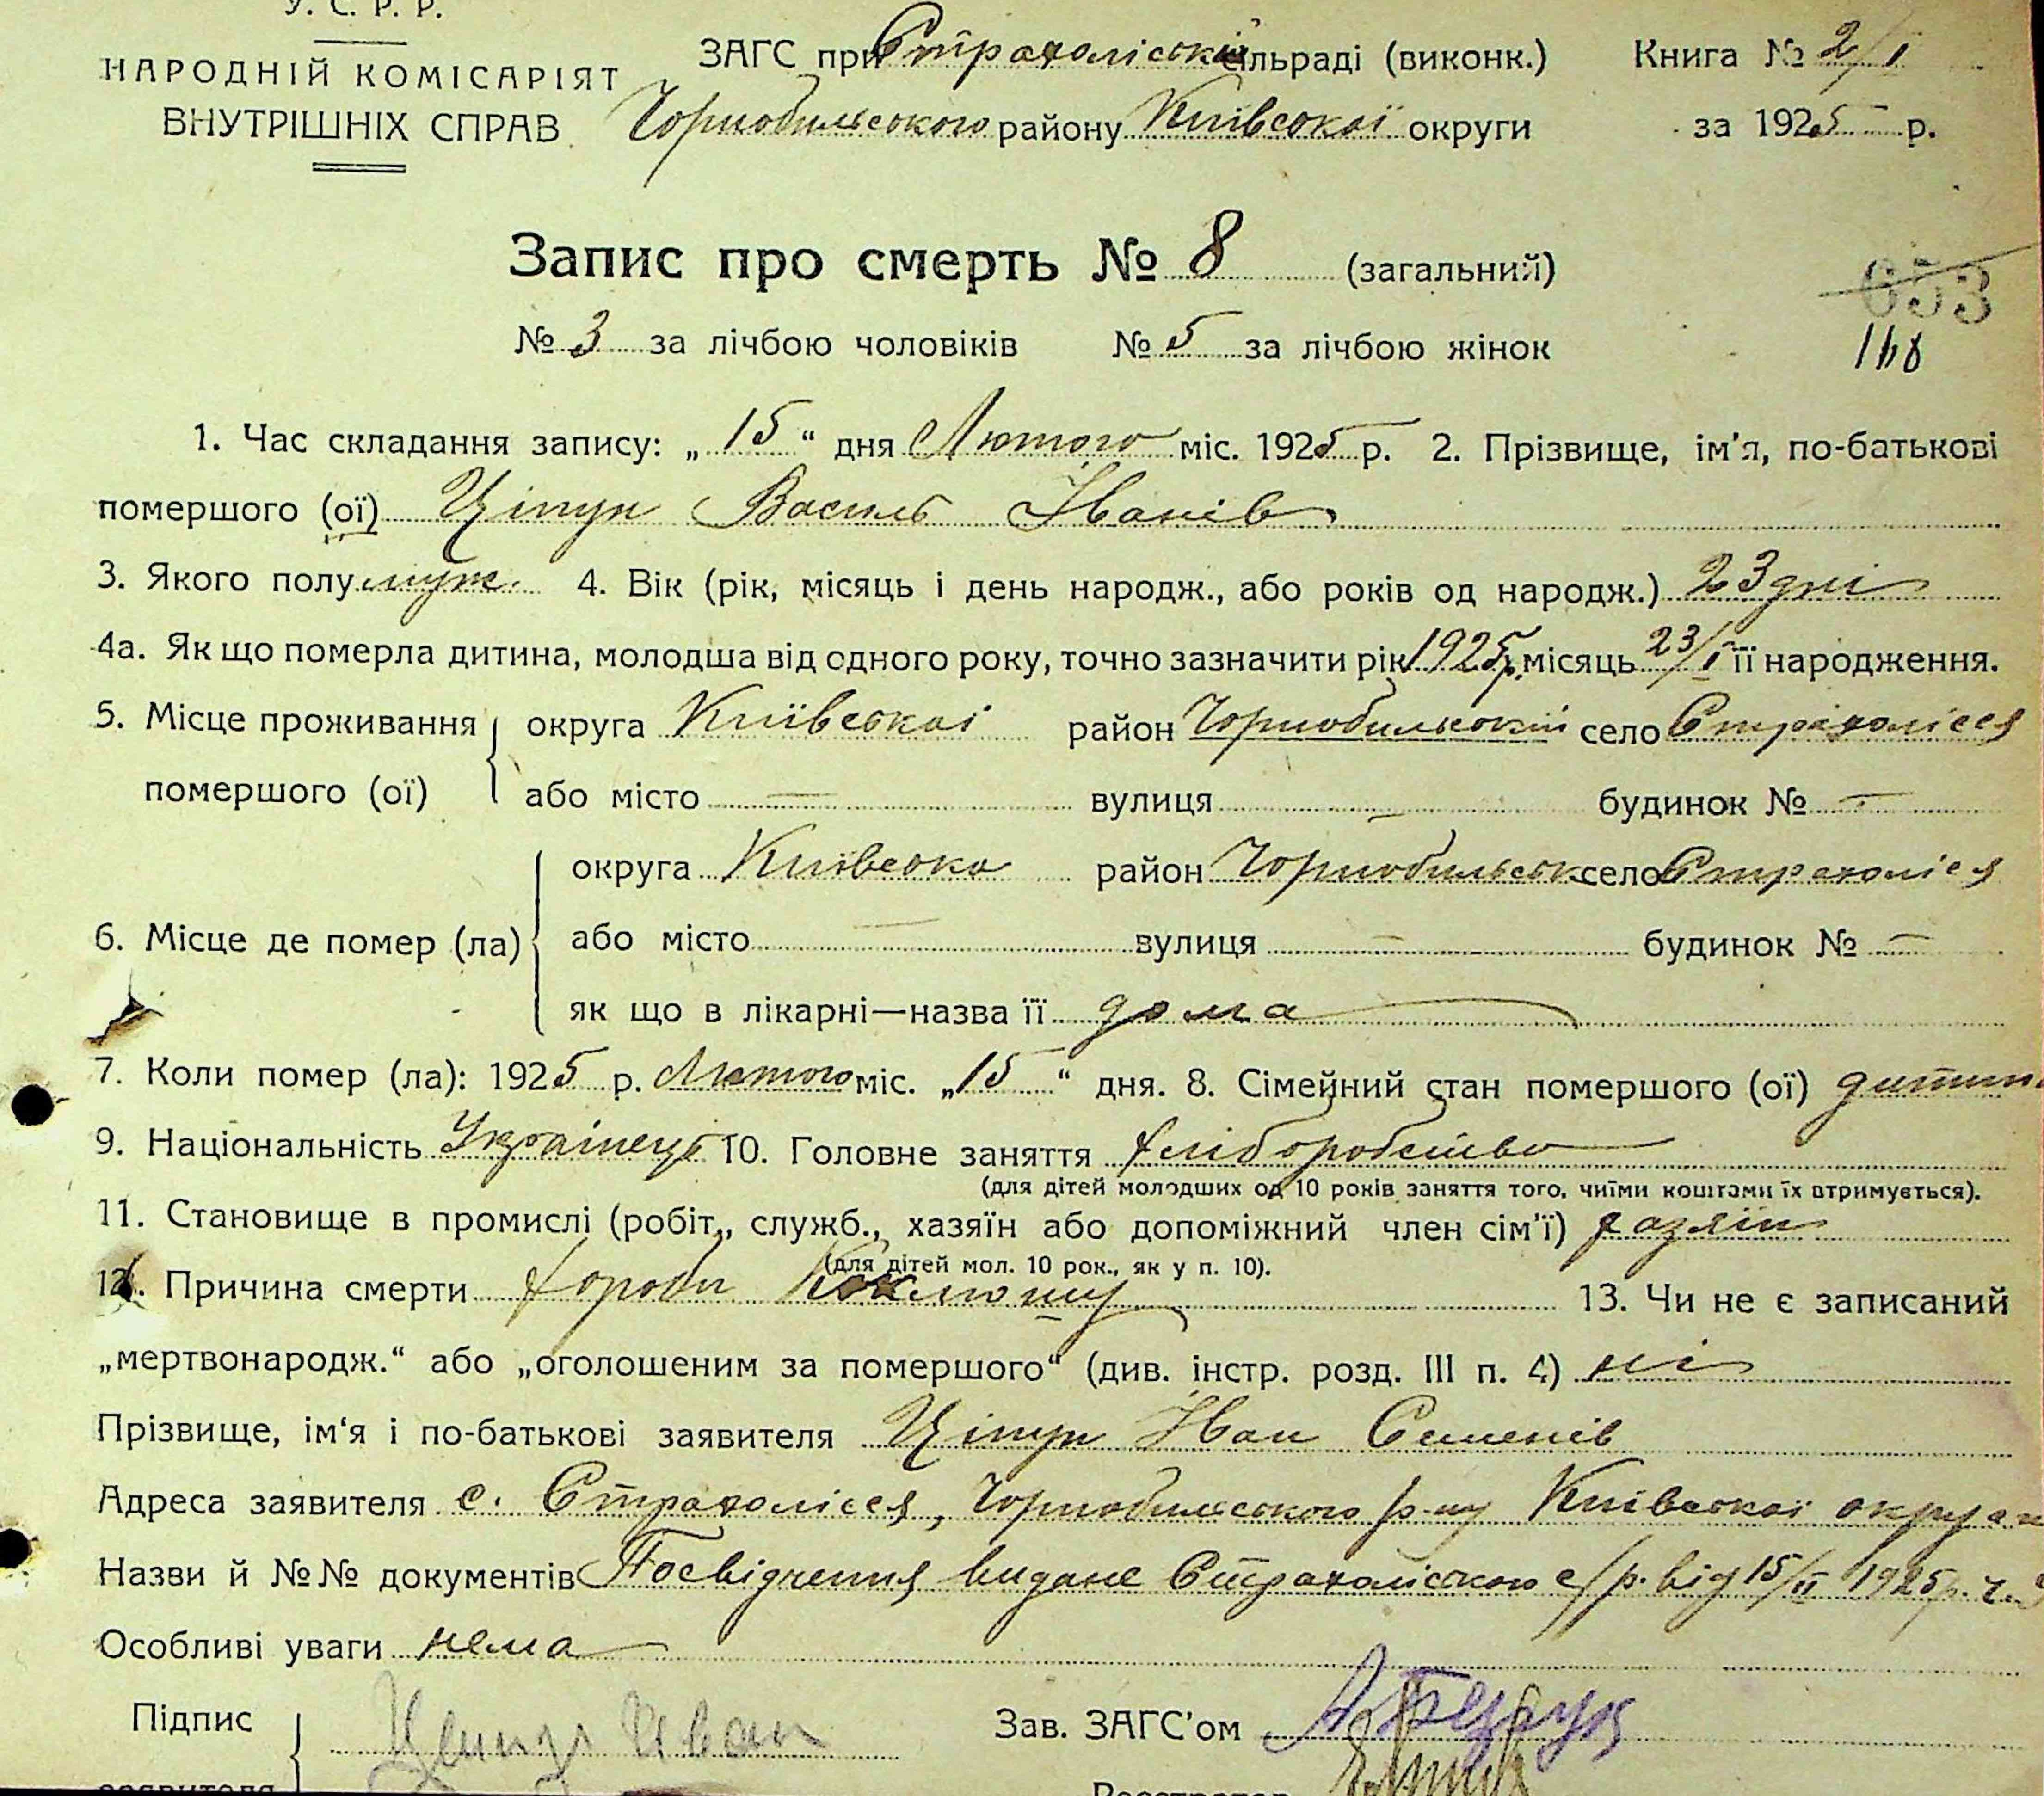 У. С. Р. Р.
НАРОДНІЙ КОМІСАРІЯТ
ВНУТРІШНІХ СПРАВ
ЗАГС при Страхоліській сільраді (виконк.)
Чорнобильського району Київської округи
Книга № 2/I
за 1925 р.
Запис про смерть № 8 (загальний)
653
№ 3 за лічбою чоловіків № 5 за лічбою жінок
168
1. Час складання запису: „15“ дня Лютого міс. 1925 р. 2. Прізвище, ім'я, по-батькові
помершого (ої) Ціпун Василь Іванів
3. Якого полу муж. 4. Вік (рік, місяць і день народж., або років од народж.) 23 дні
4а. Як що померла дитина, молодша від одного року, точно зазначити рік 1925р. місяць 23/I її народження.
5. Місце проживання округа Київської район Чорнобильський село Страхолісся
помершого (ої) або місто — вулиця — будинок № —
округа Київська район Чорнобильськ село Страхолісся
6. Місце де помер (ла) або місто — вулиця — будинок № —
як що в лікарні—назва її дома
7. Коли помер (ла): 1925 р. Лютого міс. „15“ дня. 8. Сімейний стан помершого (ої) дитина
9. Національність Українець 10. Головне заняття хліборобство
(для дітей молодших од 10 років заняття того, чиїми коштами їх отримується).
11. Становище в промислі (робіт., служб., хазяїн або допоміжний член сім'ї) хазяїн
(для дітей мол. 10 рок., як у п. 10).
12. Причина смерти хороби Коклюшу 13. Чи не є записаний
„мертвонародж.“ або „оголошеним за помершого“ (див. інстр. розд. III п. 4) ні
Прізвище, ім'я і по-батькові заявителя Ціпун Іван Семенів
Адреса заявителя с. Страхолісся, Чорнобильського р-ну Київської округи
Назви й №№ документів Посвідчення видане Страхоліською с/р. від 15/II 1925р. ч.
Особливі уваги нема
Підпис Іван Зав. ЗАГС'ом
заявителя Реєстратор